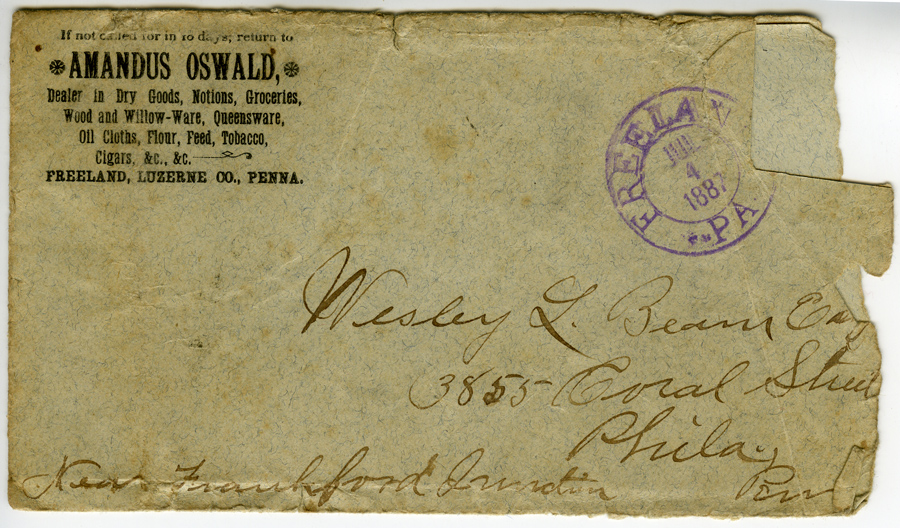 If not called for in 10 days, return to
AMANDUS OSWALD,
Dealer in Dry Goods, Notions, Groceries,
Wood and Willow-Ware, Queensware,
Oil Cloths, Flour, Feed, Tobacco,
Cigars, &c., &c.
FREELAND, LUZERNE CO., PENNA.
FREELAN
4
1887
PA
Wesley L. Beam, Esq
3855 Coral Street
Phila.
Near Frankford Junction Penn